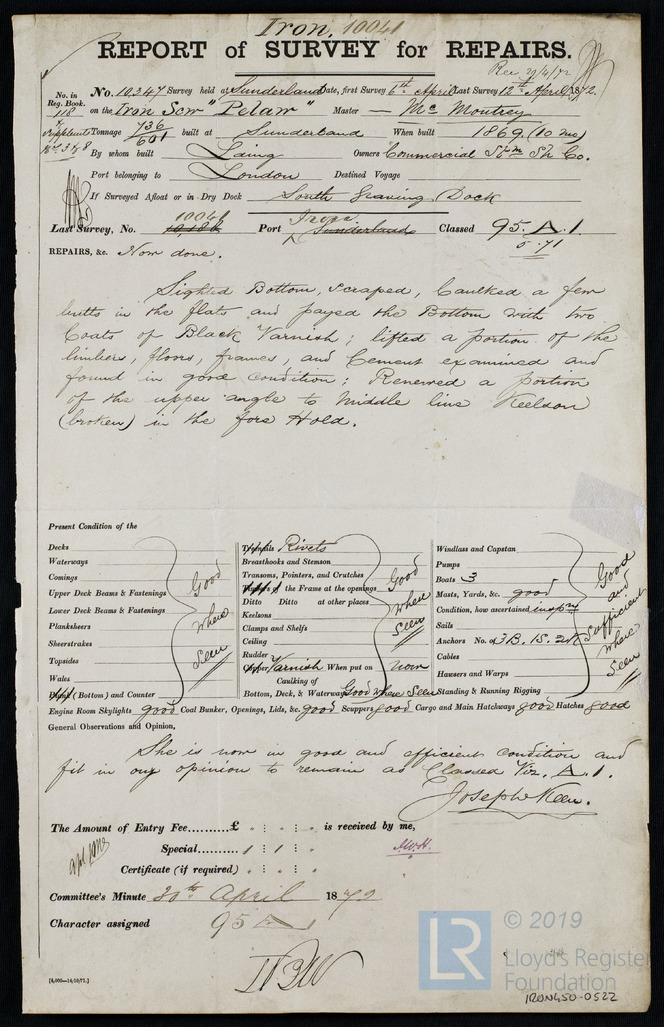 Iron. 10041
REPORT of SURVEY for REPAIRS.
Rec 29/4/72
No. in Reg. Book. 118
No. 10,347 Survey held at Sunderland Date, first Survey 6th April Last Survey 12th April 1872.
on the Iron Scw "Pelaw" Master Mc Moutrey
Tonnage 736 601 built at Sunderland When built 1869. (10 mo)
By whom built Laing Owners Commercial Stm Sh Co.
Port belonging to London Destined Voyage
If Surveyed Afloat or in Dry Dock South Graving Dock
10041
Last Survey, No. Port Sunderland Classed 95. A. 1.
5.71
REPAIRS, &c. Now done.
Sighted Bottom, scraped, Caulked a few
butts in the flats and payed the Bottom with two
Coats of Black Varnish; lifted a portion of the
limbers, floors, frames, and Cement examined and
found in good condition; Renewed a portion
of the upper angle to Middle line Keelson
(broken) in the fore Hold.
Present Condition of the
Decks
Waterways
Comings
Upper Deck Beams & Fastenings
Lower Deck Beams & Fastenings
Planksheers
Sheerstrakes
Topsides
Wales
(Bottom) and Counter
Good where Seen
Treenails Rivets
Breasthooks and Stemson
Transoms, Pointers, and Crutches
of the Frame at the openings
Ditto Ditto at other places
Keelsons
Clamps and Shelfs
Ceiling
Rudder
Good where Seen
Copper Varnish When put on now
Caulking of
Bottom, Deck, & Waterways Good where Seen
Windlass and Capstan
Pumps
Boats 3
Masts, Yards, &c. good
Condition, how ascertained
Sails
Anchors No. of 3 B. 1 S. 2 K
Cables
Hausers and Warps
Standing & Running Rigging
Good and Sufficient where Seen
Engine Room Skylights good Coal Bunker, Openings, Lids, &c. good Scuppers good Cargo and Main Hatchways good Hatches good
General Observations and Opinion,
She is now in good and efficient condition and
fit in my opinion to remain as Classed Viz. A. 1.
Joseph Keen.
The Amount of Entry Fee.........£ is received by me,
Special........ 1 1
Certificate (if required)
Committee's Minute 30th April 1872
Character assigned 95 A
[4,000—14/10/71.]
LR © 2019
Lloyd's Register
Foundation
IRON450-0522